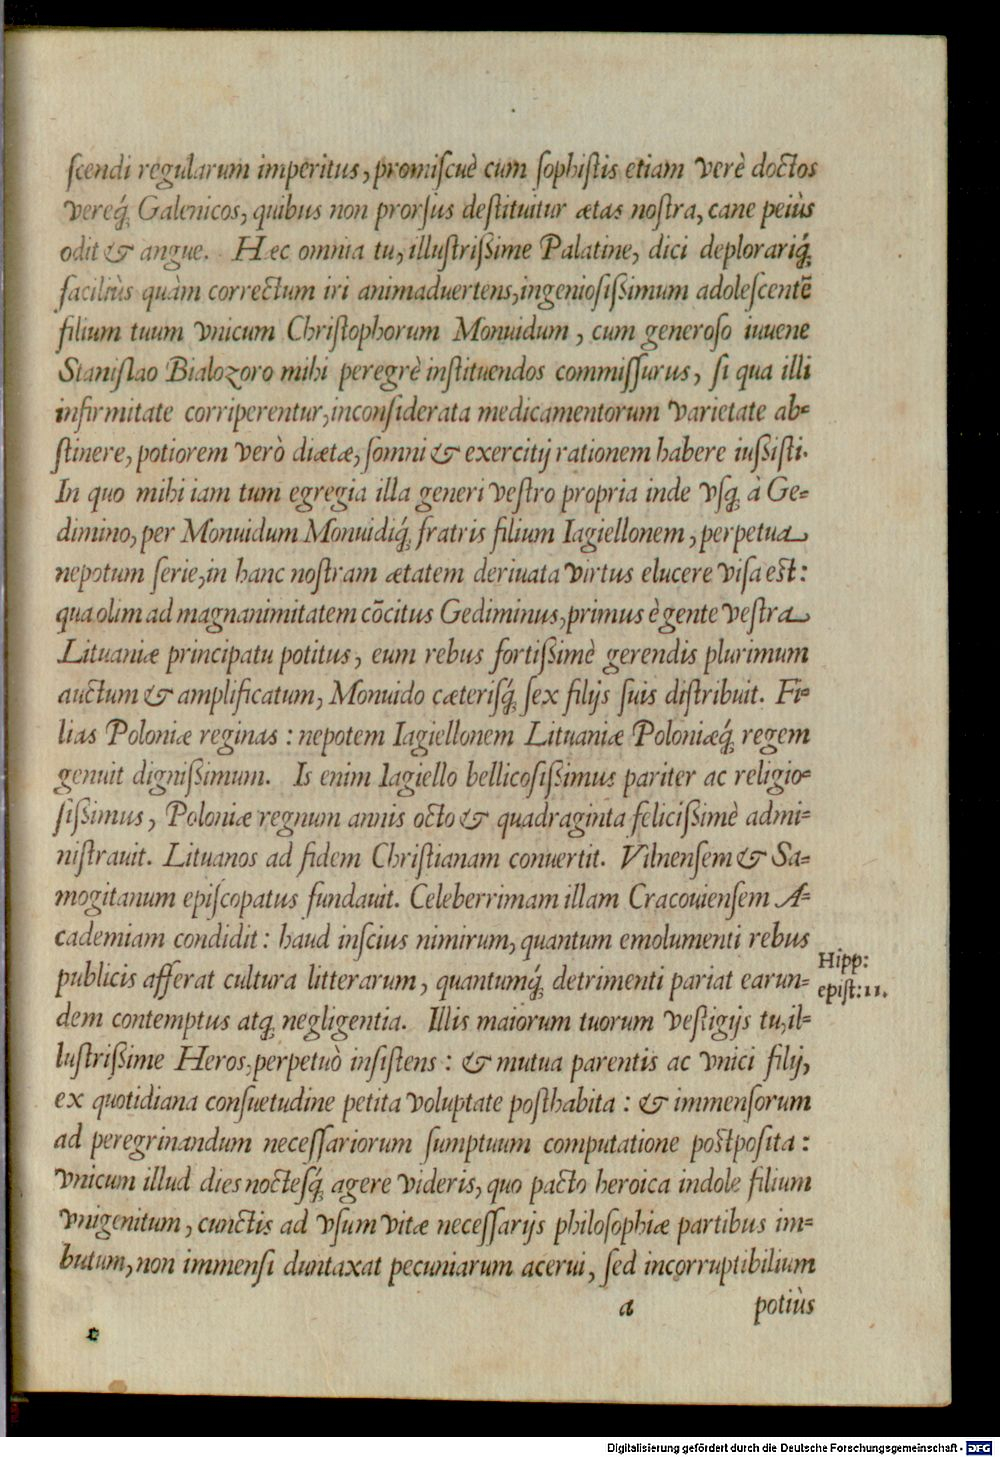 ſcendi regularum imperitus, promiſcuè cum ſophiſtis etiam verè doctos
vereq́; Galenicos, quibus non prorſus deſtituitur ætas noſtra, cane peiùs
odit & angue. Hæc omnia tu, illuſtriſsime Palatine, dici deplorariq́;
faciliùs quàm correctum iri animaduertens, ingenioſiſsimum adoleſcentē
filium tuum vnicum Chriſtophorum Monuidum, cum generoſo iuuene
Staniſlao Bialozoro mihi peregrè inſtituendos commiſſurus, ſi qua illi
infirmitate corriperentur, inconſiderata medicamentorum varietate ab=
ſtinere, potiorem verò diætæ, ſomni & exercitij rationem habere iuſsiſti.
In quo mihi iam tum egregia illa generi veſtro propria inde vſq; à Ge=
dimino, per Monuidum Monuidiq́; fratris filium Iagiellonem, perpetua
nepotum ſerie, in hanc noſtram ætatem deriuata virtus elucere viſa eſt:
qua olim ad magnanimitatem cōcitus Gediminus, primus è gente veſtra
Lituaniæ principatu potitus, eum rebus fortiſsimè gerendis plurimum
auctum & amplificatum, Monuido cæteriſq́; ſex filijs ſuis diſtribuit. Fi=
lias Poloniæ reginas: nepotem Iagiellonem Lituaniæ Poloniæq́; regem
genuit digniſsimum. Is enim Iagiello bellicoſiſsimus pariter ac religio=
ſiſsimus, Poloniæ regnum annis octo & quadraginta feliciſsimè admi=
niſtrauit. Lituanos ad fidem Chriſtianam conuertit. Vilnenſem & Sa=
mogitanum epiſcopatus fundauit. Celeberrimam illam Cracouienſem A=
cademiam condidit: haud inſcius nimirum, quantum emolumenti rebus
publicis afferat cultura litterarum, quantumq́; detrimenti pariat earun=
dem contemptus atq; negligentia. Illis maiorum tuorum veſtigijs tu, il=
luſtriſsime Heros, perpetuò inſiſtens: & mutua parentis ac vnici filij,
ex quotidiana conſuetudine petita voluptate poſthabita: & immenſorum
ad peregrinandum neceſſariorum ſumptuum computatione poſtpoſita:
vnicum illud dies nocteſq́; agere videris, quo pacto heroica indole filium
vnigenitum, cunctis ad vſum vitæ neceſſarijs philoſophiæ partibus im=
butum, non immenſi duntaxat pecuniarum acerui, ſed incorruptibilium
a potiùs
Hipp:
epiſt:11.
Digitalisierung gefördert durch die Deutsche Forschungsgemeinschaft - DFG